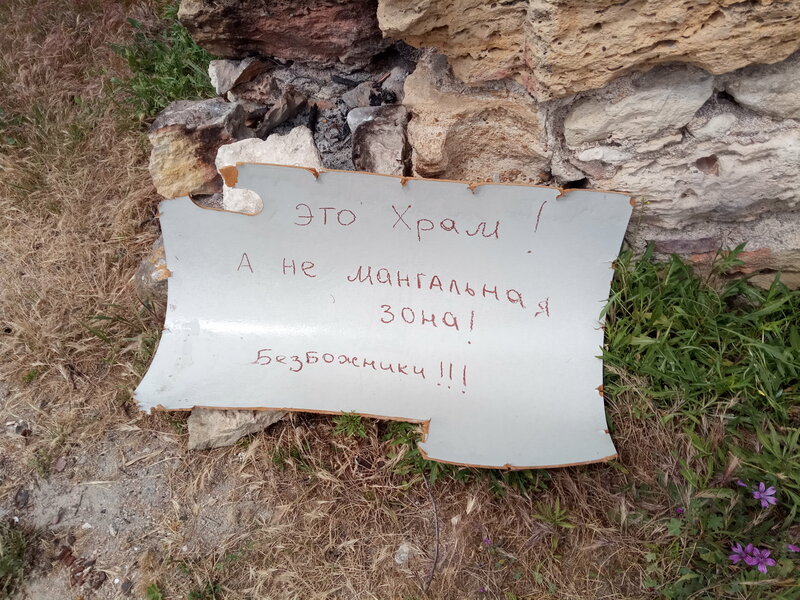 это Храм!
А не мангальная
зона!
Безбожники!!!